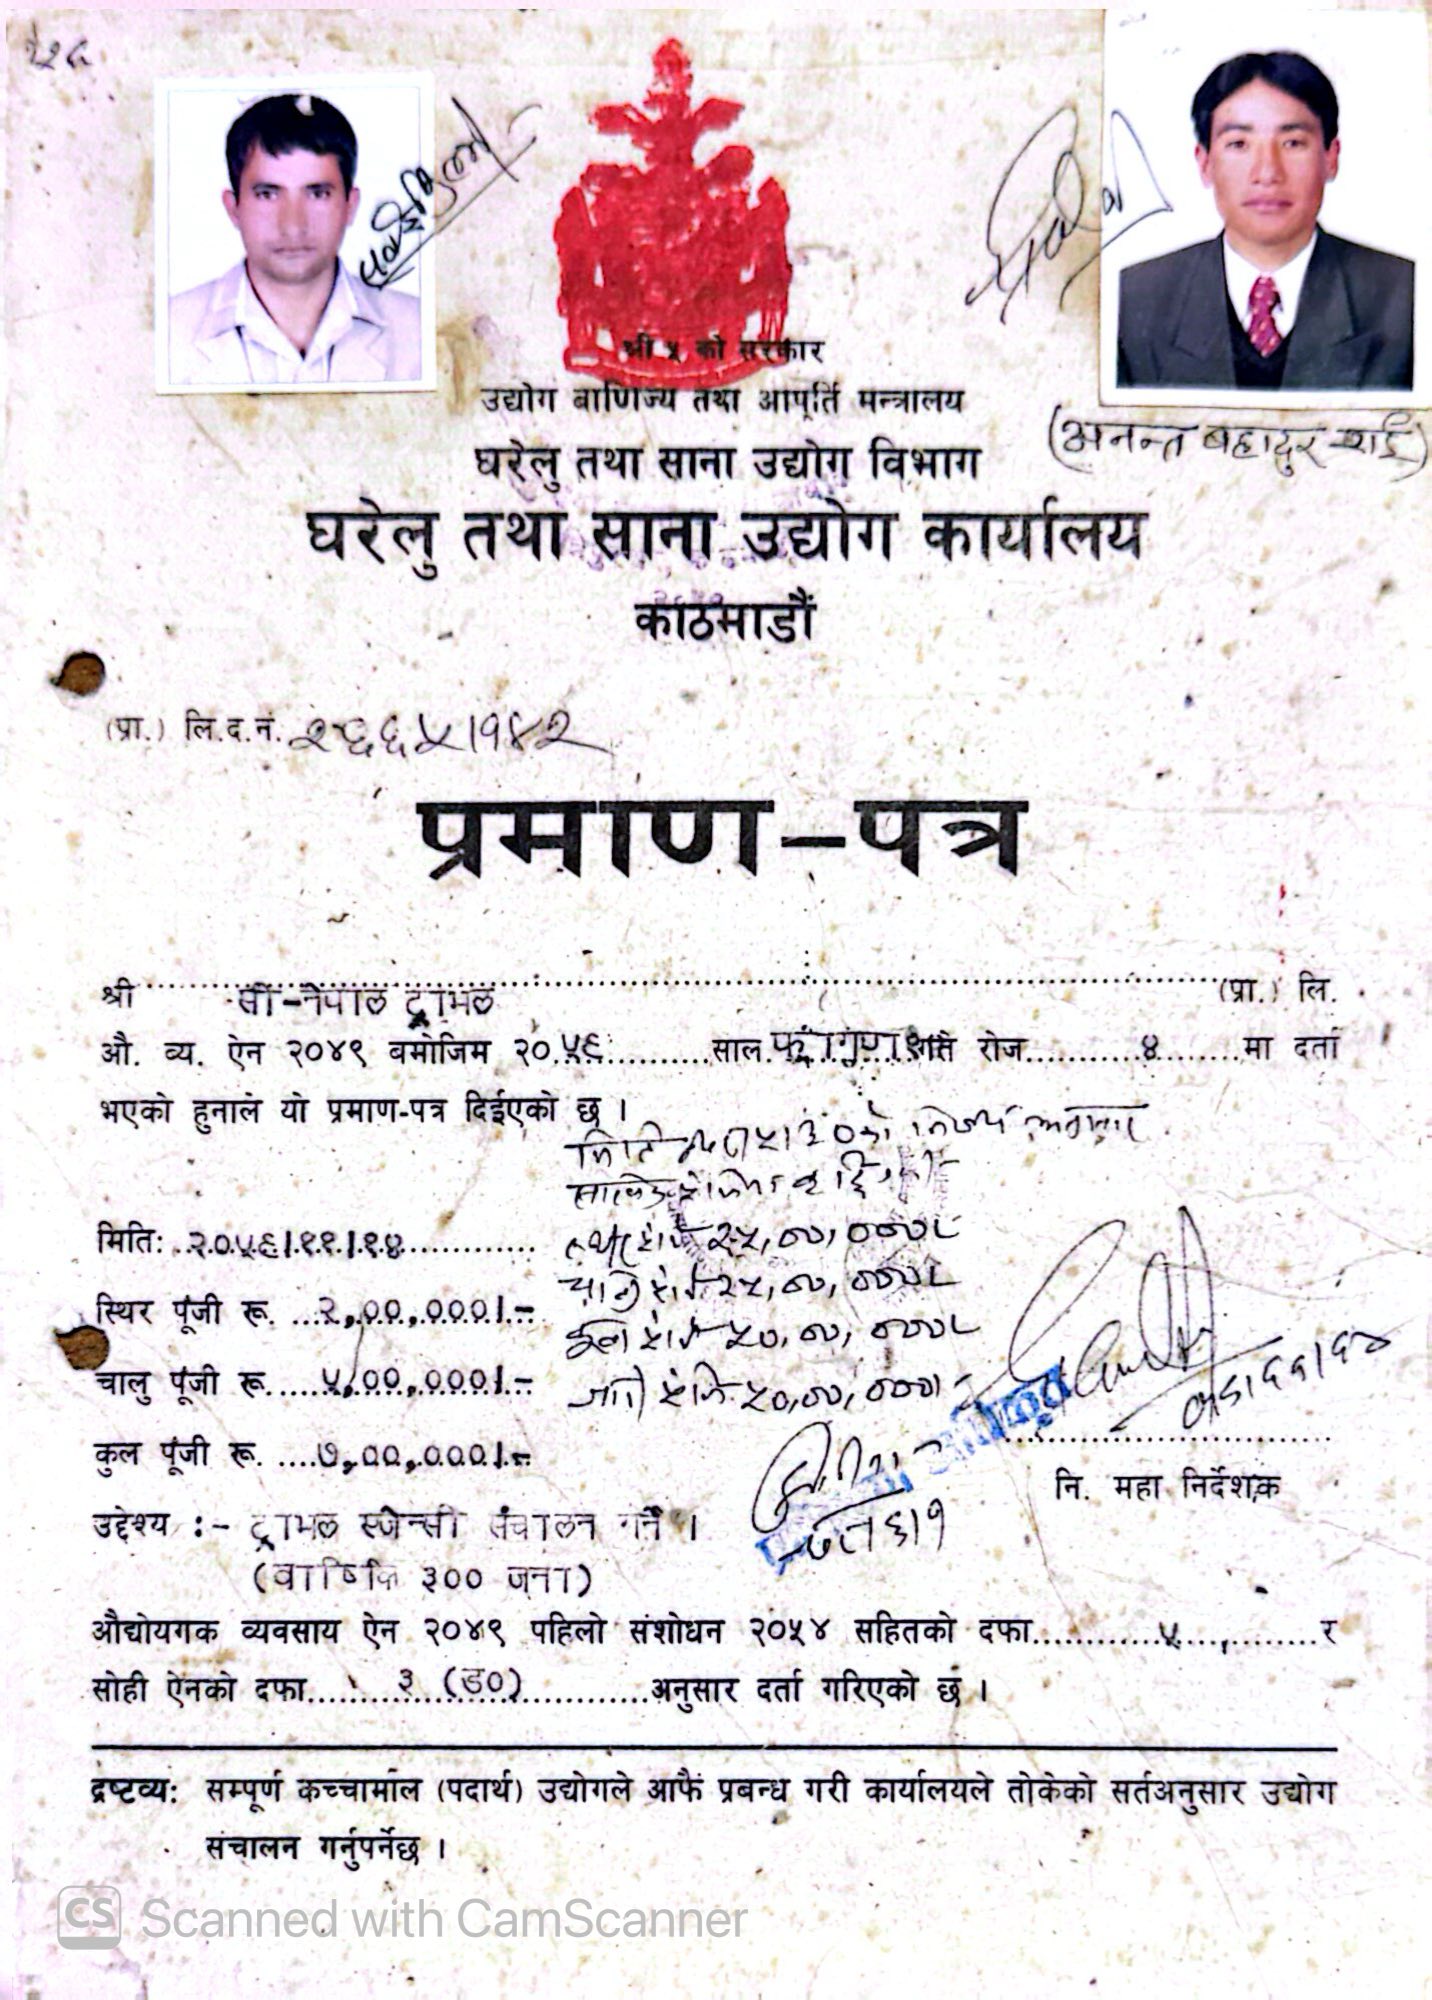 श्री ५ को सरकार
उद्योग बाणिज्य तथा आपूर्ति मन्त्रालय
घरेलु तथा साना उद्योग विभाग
(अनन्त बहादुर राई)
घरेलु तथा साना उद्योग कार्यालय
काठमाडौं
(प्रा.) लि.द.नं. २८६६५।१४२
प्रमाण-पत्र
श्री सी-नेपाल ट्राभल (प्रा.) लि.
औ. व्य. ऐन २०४९ बमोजिम २०५६ साल फागुण गते रोज ४ मा दर्ता
भएको हुनाले यो प्रमाण-पत्र दिईएको छ ।
मिति को निर्णय अनुसार
मिति: २०५६।११।१४
स्थिर पूंजी रू. २,००,०००।-
चालु पूंजी रू. ५,००,०००।-
कुल पूंजी रू. ७,००,०००।-
स्थिर पूंजि २५,००,०००।-
चालु पूंजि २५,००,०००।-
कुल पूंजि ५०,००,०००।-
जारी पूंजि ५०,००,०००।-
नि. महा निर्देशक
उद्देश्य :- ट्राभल एजेन्सी संचालन गर्ने ।
(वार्षिक ३०० जना)
औद्योयगक व्यवसाय ऐन २०४९ पहिलो संशोधन २०५४ सहितको दफा ५ र
सोही ऐनको दफा ३ (ड०) अनुसार दर्ता गरिएको छ ।
द्रष्टव्य: सम्पूर्ण कच्चार्माल (पदार्थ) उद्योगले आफैं प्रबन्ध गरी कार्यालयले तोकेको सर्तअनुसार उद्योग
संचालन गर्नुपर्नेछ ।
CS Scanned with CamScanner